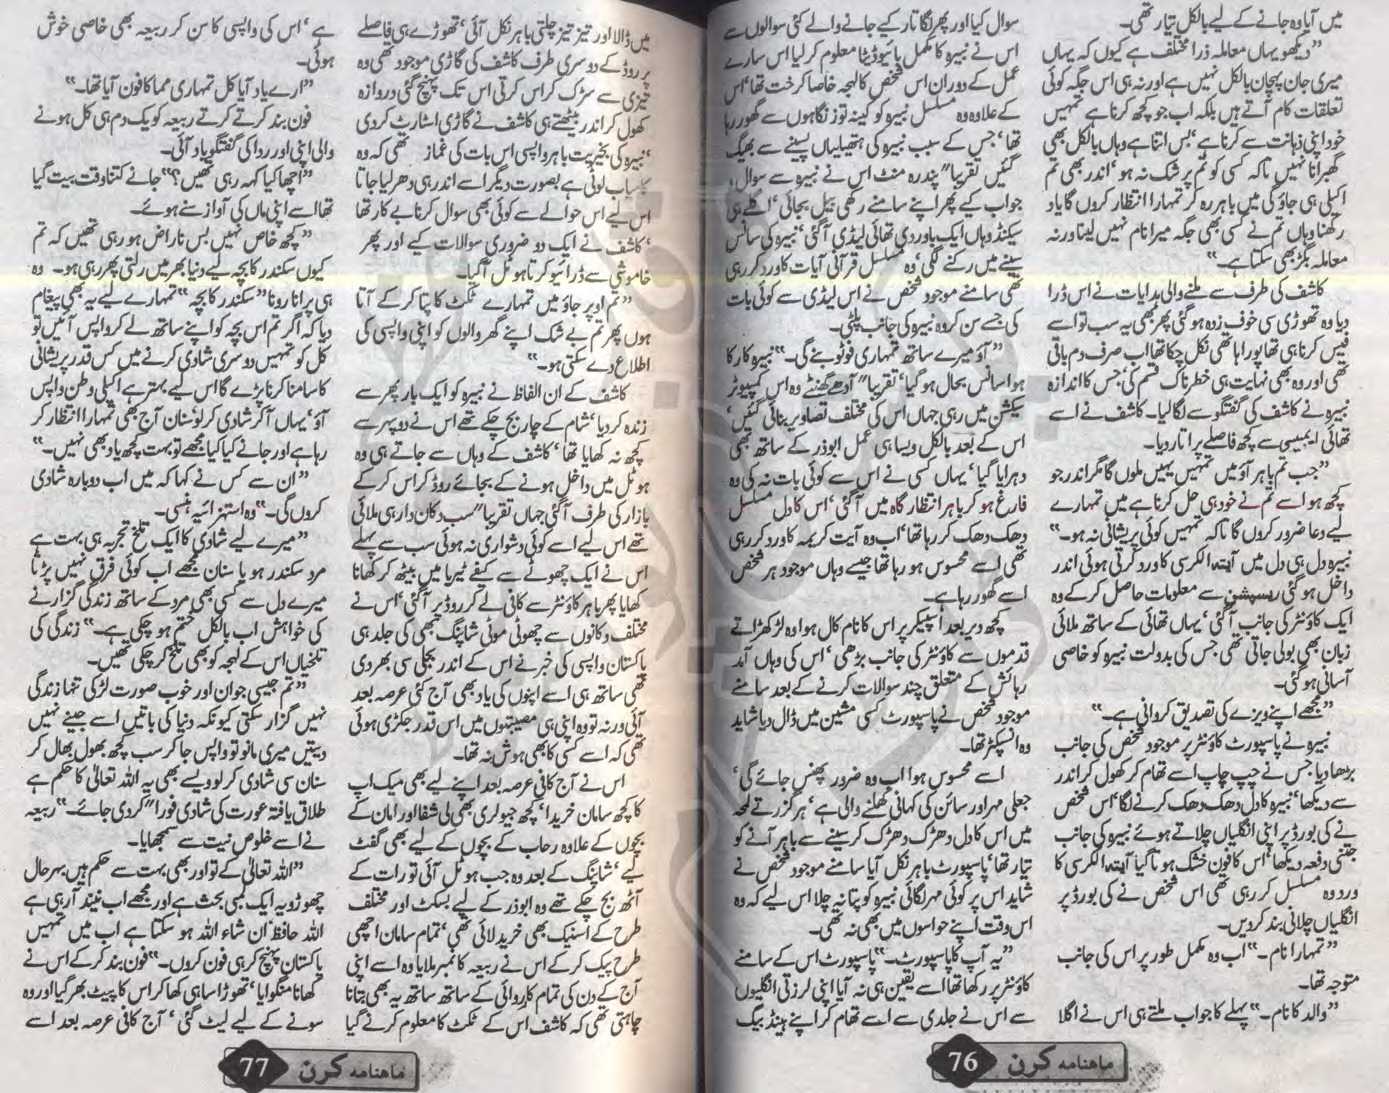 میں آیا وہ جانے کے لیے بالکل تیار تھی۔
”دیکھو یہاں معاملہ ذرا مختلف ہے کیوں کہ یہاں
میری جان پہچان بالکل نہیں ہے اور نہ ہی اس جگہ کوئی
تعلقات کام آتے ہیں بلکہ اب جو کچھ کرنا ہے تمہیں
خود اپنی ذہانت سے کرنا ہے‘ بس اتنا ہے وہاں بالکل بھی
گھبرانا نہیں تاکہ کسی کو تم پر شک نہ ہو‘ اندر بھی تم
اکیلی ہی جاؤ گی میں باہر رہ کر تمہارا انتظار کروں گا یاد
رکھنا وہاں تم نے کسی بھی جگہ میرا نام نہیں لینا ورنہ
معاملہ بگڑ بھی سکتا ہے۔“
کاشف کی طرف سے ملنے والی ہدایات نے اس ڈرا
دیا وہ تھوڑی سی خوف زدہ ہو گئی پھر بھی یہ سب تو اسے
فیس کرنا ہی تھا پورا ہاتھی نکل چکا تھا اب صرف دم باقی
تھی اور وہ بھی نہایت ہی خطرناک قسم کی‘ جس کا اندازہ
نبیرہ نے کاشف کی گفتگو سے لگا لیا۔ کاشف نے اسے
تھائی ایمبیسی سے کچھ فاصلے پر اتار دیا۔
”جب تم باہر آؤ میں تمہیں یہیں ملوں گا مگر اندر جو
کچھ ہو اسے تم نے خود ہی حل کرنا ہے میں تمہارے
لیے دعا ضرور کروں گا تاکہ تمہیں کوئی پریشانی نہ ہو۔“
نبیرہ دل ہی دل میں آیتہ الکرسی کا ورد کرتی ہوئی اندر
داخل ہو گئی ریسپشن سے معلومات حاصل کر کے وہ
ایک کاؤنٹر کی جانب آگئی‘ یہاں تھائی کے ساتھ ملائی
زبان بھی بولی جاتی تھی جس کی بدولت نبیرہ کو خاصی
آسانی ہو گئی۔
”مجھے اپنے ویزے کی تصدیق کروانی ہے۔“
نبیرہ نے پاسپورٹ کاؤنٹر پر موجود شخص کی جانب
بڑھا دیا جس نے چپ چاپ اسے تھام کر کھول کر اندر
سے دیکھا‘ نبیرہ کا دل دھک دھک کرنے لگا‘ اس شخص
نے کی بورڈ پر اپنی انگلیاں چلاتے ہوئے نبیرہ کی جانب
جتنی دفعہ دیکھا‘ اس کا خون خشک ہوتا گیا آیتہ الکرسی کا
ورد وہ مسلسل کر رہی تھی اس شخص نے کی بورڈ پر
انگلیاں چلانی بند کر دیں۔
”تمہارا نام۔“ اب وہ مکمل طور پر اس کی جانب
متوجہ تھا۔
”والد کا نام۔“ پہلے کا جواب ملتے ہی اس نے اگلا
سوال کیا اور پھر لگاتار کیے جانے والے کئی سوالوں سے
اس نے نبیرہ کا مکمل بائیو ڈیٹا معلوم کر لیا اس سارے
عمل کے دوران اس شخص کا لہجہ خاصا کرخت تھا‘ اس
کے علاوہ وہ مسلسل نبیرہ کو کینہ توز نگاہوں سے گھور رہا
تھا‘ جس کے سبب نبیرہ کی ہتھیلیاں پسینے سے بھیگ
گئیں تقریباً“ پندرہ منٹ اس نے نبیرہ سے سوال‘
جواب کیے پھر اپنے سامنے رکھی بیل بجائی‘ اگلے ہی
سیکنڈ وہاں ایک باوردی تھائی لیڈی آگئی‘ نبیرہ کی سانس
سینے میں رکنے لگی‘ وہ مسلسل قرآنی آیات کا ورد کر رہی
تھی سامنے موجود شخص نے اس لیڈی سے کوئی بات
کی جسے سن کر وہ نبیرہ کی جانب پلٹی۔
”آؤ میرے ساتھ تمہاری فوٹو بنے گی۔“ نبیرہ کا رکا
ہوا سانس بحال ہو گیا‘ تقریباً“ آدھے گھنٹے وہ اس کمپیوٹر
سیکشن میں رہی جہاں اس کی مختلف تصاویر بنائی گئیں‘
اس کے بعد بالکل ویسا ہی عمل ابوذر کے ساتھ بھی
دہرایا گیا‘ یہاں کسی نے اس سے کوئی بات نہ کی وہ
فارغ ہو کر باہر انتظار گاہ میں آگئی‘ اس کا دل مسلسل
دھک دھک کر رہا تھا‘ اب وہ آیت کریمہ کا ورد کر رہی
تھی اسے محسوس ہو رہا تھا جیسے وہاں موجود ہر شخص
اسے گھور رہا ہے۔
کچھ دیر بعد اسپیکر پر اس کا نام کال ہوا وہ لڑکھڑاتے
قدموں سے کاؤنٹر کی جانب بڑھی‘ اس کی وہاں آمد
رہائش کے متعلق چند سوالات کرنے کے بعد سامنے
موجود شخص نے پاسپورٹ کسی مشین میں ڈال دیا شاید
وہ انسپکٹر تھا۔
اسے محسوس ہوا اب وہ ضرور پھنس جائے گی‘
جعلی مہر اور سائن کی کہانی کھلنے والی ہے‘ ہر گزرتے لمحہ
میں اس کا دل دھڑک دھڑک کر سینے سے باہر آنے کو
تیار تھا‘ پاسپورٹ باہر نکل آیا سامنے موجود شخص نے
شاید اس پر کوئی مہر لگائی نبیرہ کو پتا نہ چلا اس لیے کہ وہ
اس وقت اپنے حواسوں میں بھی نہ تھی۔
”یہ آپ کا پاسپورٹ۔“ پاسپورٹ اس کے سامنے
کاؤنٹر پر رکھا تھا اسے یقین ہی نہ آیا اپنی لرزتی انگلیوں
سے اس نے جلدی سے اسے تھام کر اپنے ہینڈ بیگ
ماہنامہ کرن 76
میں ڈالا اور تیز تیز چلتی باہر نکل آئی‘ تھوڑے ہی فاصلے
پر روڈ کے دوسری طرف کاشف کی گاڑی موجود تھی وہ
تیزی سے سڑک کراس کرتی اس تک پہنچ گئی دروازہ
کھول کر اندر بیٹھتے ہی کاشف نے گاڑی اسٹارٹ کر دی
‘نبیرہ کی بخیریت باہر واپسی اس بات کی غماز تھی کہ وہ
کامیاب لوٹی ہے بصورت دیگر اسے اندر ہی دھر لیا جاتا
اس لیے اس حوالے سے کوئی بھی سوال کرنا بے کار تھا
‘کاشف نے ایک دو ضروری سوالات کیے اور پھر
خاموشی سے ڈرائیو کرتا ہوٹل آگیا۔
”تم اوپر جاؤ میں تمہارے ٹکٹ کا پتا کر کے آتا
ہوں پھر تم بے شک اپنے گھر والوں کو اپنی واپسی کی
اطلاع دے سکتی ہو۔“
کاشف کے ان الفاظ نے نبیرہ کو ایک بار پھر سے
زندہ کر دیا‘ شام کے چار بج چکے تھے اس نے دوپہر سے
کچھ نہ کھایا تھا‘ کاشف کے وہاں سے جاتے ہی وہ
ہوٹل میں داخل ہونے کے بجائے روڈ کراس کر کے
بازار کی طرف آگئی جہاں تقریباً“ سب دکان دار ہی ملائی
تھے اس لیے اسے کوئی دشواری نہ ہوئی سب سے پہلے
اس نے ایک چھوٹے سے کیفے ٹیریا میں بیٹھ کر کھانا
کھایا پھر باہر کاؤنٹر سے کافی لے کر روڈ پر آگئی‘ اس نے
مختلف دکانوں سے چھوٹی موٹی شاپنگ بھی کی جلد ہی
پاکستان واپسی کی خبر نے اس کے اندر بجلی سی بھر دی
تھی ساتھ ہی اسے اپنوں کی یاد بھی آج کئی عرصہ بعد
آئی ورنہ تو وہ اپنی ہی مصیبتوں میں اس قدر جکڑی ہوئی
تھی کہ اسے کسی کا بھی ہوش نہ تھا۔
اس نے آج کافی عرصہ بعد اپنے لیے بھی میک اپ
کا کچھ سامان خریدا‘ کچھ جیولری بھی لی شفا اور امان کے
بچوں کے علاوہ رحاب کے بچوں کے لیے بھی گفٹ
لیے‘ شاپنگ کے بعد وہ جب ہوٹل آئی تو رات کے
آٹھ بج چکے تھے وہ ابوذر کے لیے بسکٹ اور مختلف
طرح کے اسنیک بھی خرید لائی تھی‘ تمام سامان اچھی
طرح پیک کر کے اس نے ربیعہ کا نمبر ملایا وہ اسے اپنی
آج کے دن کی تمام کارروائی کے ساتھ ساتھ یہ بھی بتانا
چاہتی تھی کہ کاشف اس کے ٹکٹ کا معلوم کرنے گیا
ہے‘ اس کی واپسی کا سن کر ربیعہ بھی خاصی خوش
ہوئی۔
”ارے یاد آیا کل تمہاری مما کا فون آیا تھا۔“
فون بند کرتے کرتے ربیعہ کو یک دم ہی کل ہونے
والی اپنی اور ردا کی گفتگو یاد آئی۔
”اچھا کیا کہہ رہی تھیں؟“ جانے کتنا وقت بیت گیا
تھا اسے اپنی ماں کی آواز سنے ہوئے۔
”کچھ خاص نہیں بس ناراض ہو رہی تھیں کہ تم
کیوں سکندر کا بچہ لیے دنیا بھر میں رلتی پھر رہی ہو۔ وہ
ہی پرانا رونا ”سکندر کا بچہ“ تمہارے لیے یہ بھی پیغام
دیا کہ اگر تم اس بچہ کو اپنے ساتھ لے کر واپس آئیں تو
کل کو تمہیں دوسری شادی کرنے میں کس قدر پریشانی
کا سامنا کرنا پڑے گا اس لیے بہتر ہے اکیلی وطن واپس
آؤ‘ یہاں آکر شادی کر لو سنان آج بھی تمہارا انتظار کر
رہا ہے اور جانے کیا کیا مجھے تو بہت کچھ یاد بھی نہیں۔“
”ان سے کس نے کہا کہ میں اب دوبارہ شادی
کروں گی۔“ وہ استہزائیہ ہنسی۔
”میرے لیے شادی کا ایک تلخ تجربہ ہی بہت ہے
مرد سکندر ہو یا سنان مجھے اب کوئی فرق نہیں پڑتا
میرے دل سے کسی بھی مرد کے ساتھ زندگی گزارنے
کی خواہش اب بالکل ختم ہو چکی ہے۔“ زندگی کی
تلخیاں اس کے لہجہ کو بھی تلخ کر چکی تھیں۔
”تم جیسی جوان اور خوب صورت لڑکی تنہا زندگی
نہیں گزار سکتی کیونکہ دنیا کی باتیں اسے جینے نہیں
دیتیں میری مانو تو واپس جا کر سب کچھ بھول بھال کر
سنان سی شادی کر لو ویسے بھی یہ اللہ تعالیٰ کا حکم ہے
طلاق یافتہ عورت کی شادی فوراً“ کر دی جائے۔“ ربیعہ
نے اسے خلوص نیت سے سمجھایا۔
”اللہ تعالیٰ کے تو اور بھی بہت سے حکم ہیں بہرحال
چھوڑو یہ ایک لمبی بحث ہے اور مجھے اب نیند آرہی ہے
اللہ حافظ ان شاء اللہ ہو سکتا ہے اب میں تمہیں
پاکستان پہنچ کر ہی فون کروں۔“ فون بند کر کے اس نے
کھانا منگوایا‘ تھوڑا سا ہی کھا کر اس کا پیٹ بھر گیا اور وہ
سونے کے لیے لیٹ گئی‘ آج کافی عرصہ بعد اسے
ماہنامہ کرن 77